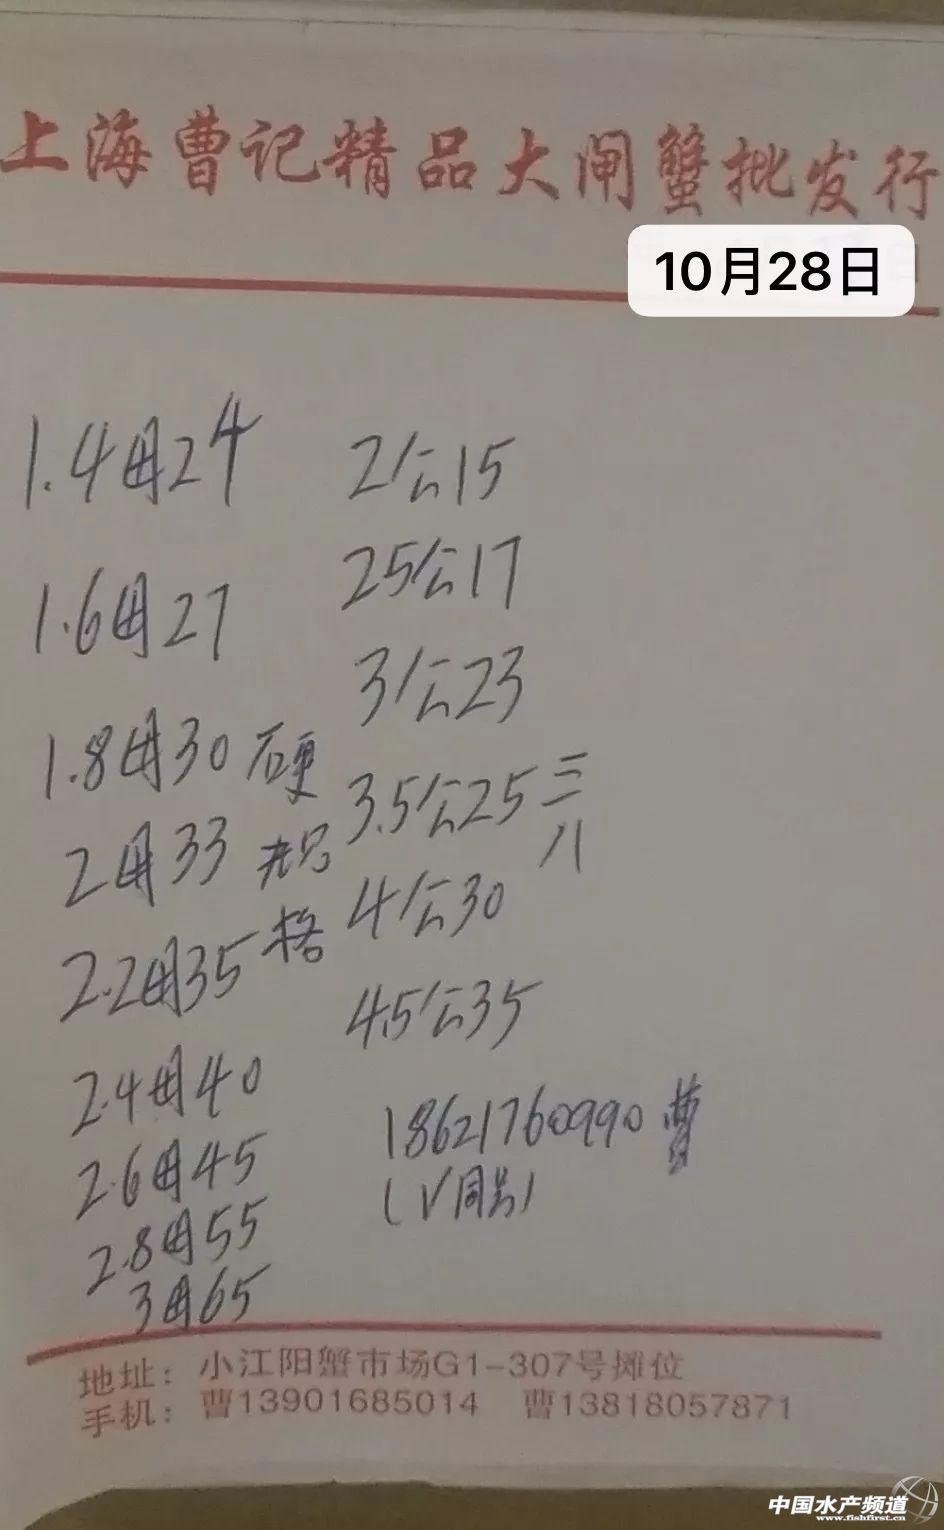 上海曹记精品大闸蟹批发行
10月28日
1.4母24
1.6母27
1.8母30 硬
2母33 壳
2.2母35 格
2.4母40
2.6母45
2.8母55
3母65
2公15
25公17
3公23
3.5公25 三八
4公30
4.5公35
18621760990 曹
(V同号)
地址：小江阳蟹市场G1-307号摊位
手机：曹13901685014 曹13818057871
中国水产频道
www.fishfirst.cn